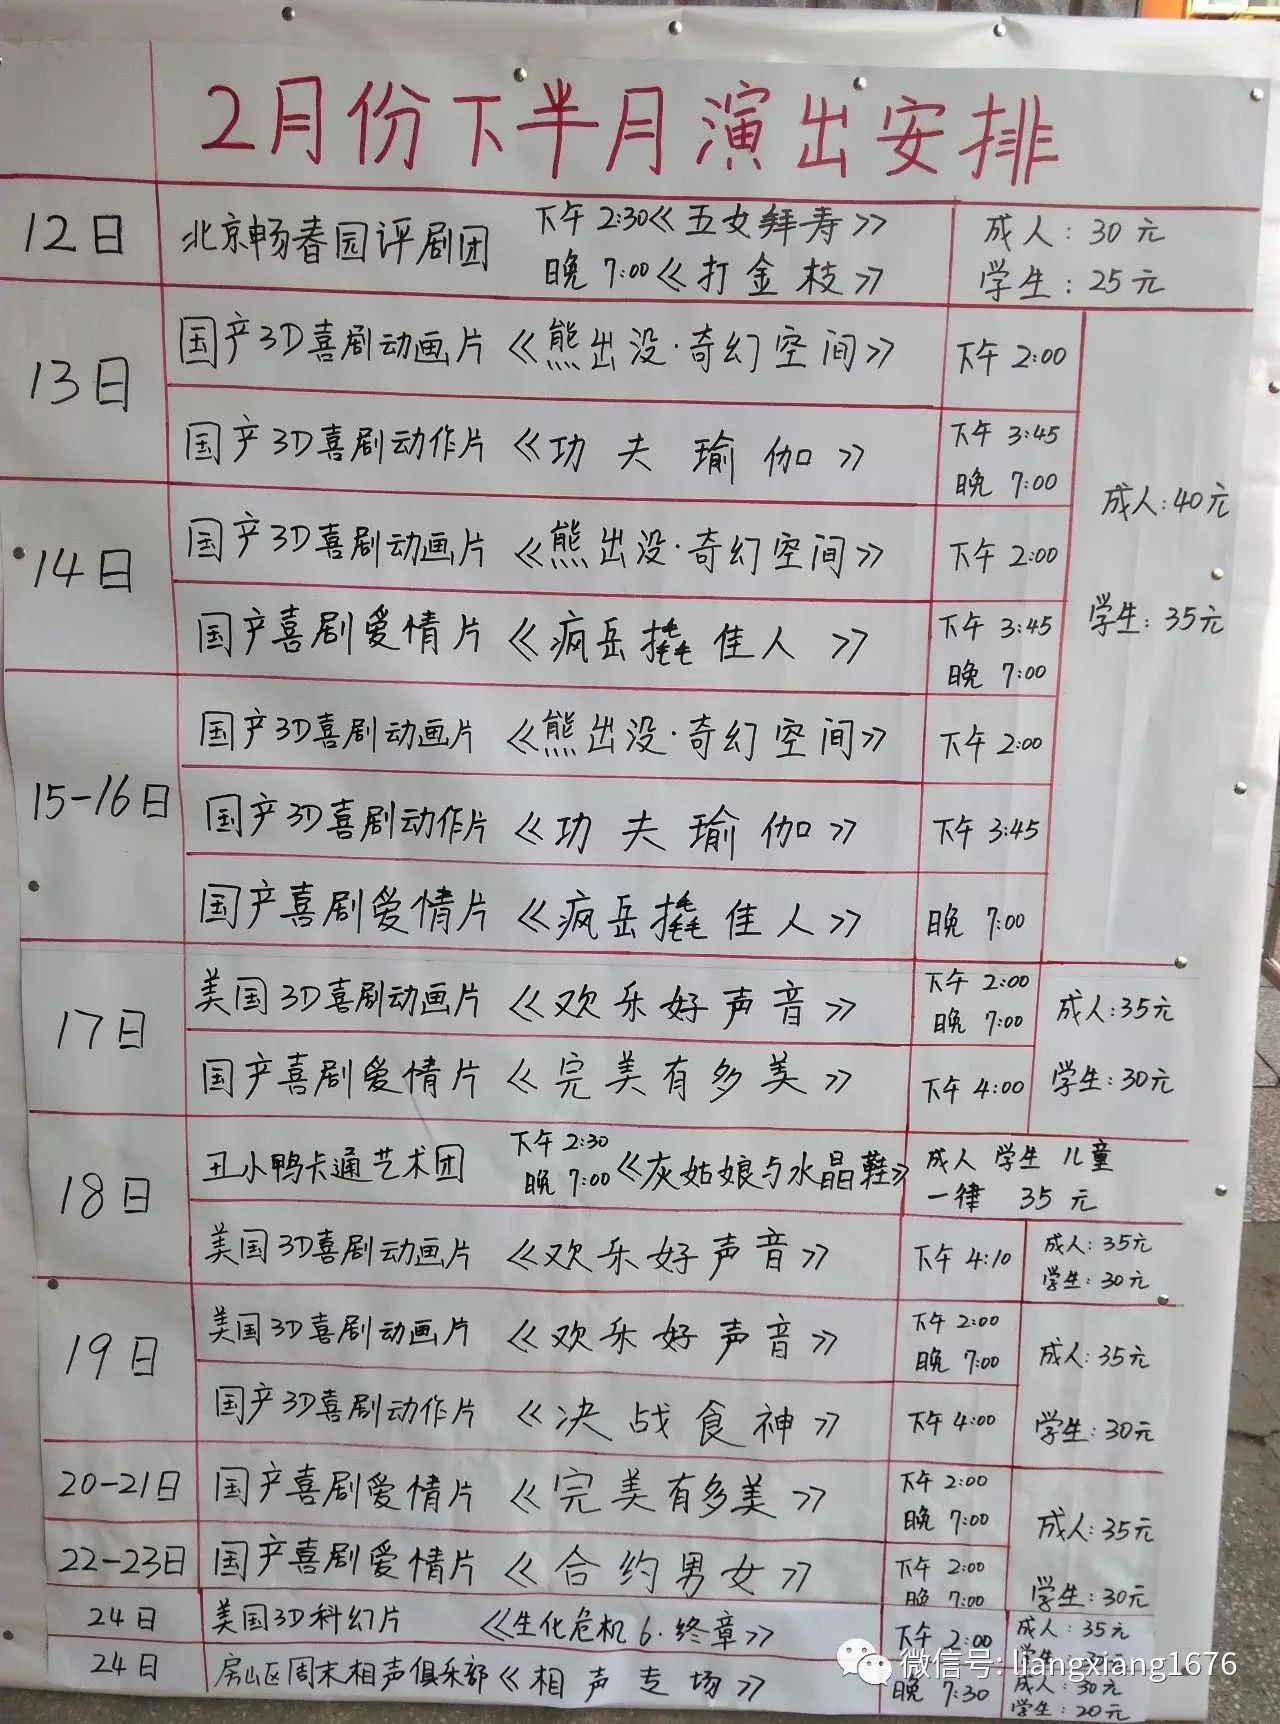 2月份下半月演出安排
12日 北京畅春园评剧团 下午 2:30《五女拜寿》 成人: 30元
晚 7:00《打金枝》 学生: 25元
13日 国产3D喜剧动画片《熊出没·奇幻空间》 下午 2:00
国产3D喜剧动作片《功夫瑜伽》 下午 3:45
晚 7:00
成人:40元
14日 国产3D喜剧动画片《熊出没·奇幻空间》 下午 2:00
国产喜剧爱情片《疯岳撬佳人》 下午 3:45
晚 7:00
学生: 35元
15-16日 国产3D喜剧动画片《熊出没·奇幻空间》 下午 2:00
国产3D喜剧动作片《功夫瑜伽》 下午 3:45
国产喜剧爱情片《疯岳撬佳人》 晚 7:00
17日 美国3D喜剧动画片《欢乐好声音》 下午 2:00
晚 7:00
成人:35元
国产喜剧爱情片《完美有多美》 下午 4:00 学生:30元
18日 丑小鸭卡通艺术团 下午 2:30
晚 7:00《灰姑娘与水晶鞋》 成人 学生 儿童
一律 35元
美国3D喜剧动画片《欢乐好声音》 下午 4:10 成人:35元
学生:30元
19日 美国3D喜剧动画片《欢乐好声音》 下午 2:00
晚 7:00
成人:35元
国产3D喜剧动作片《决战食神》 下午 4:00 学生:30元
20-21日 国产喜剧爱情片《完美有多美》 下午 2:00
晚 7:00
成人:35元
22-23日 国产喜剧爱情片《合约男女》 下午 2:00
晚 7:00
学生:30元
24日 美国3D科幻片《生化危机6·终章》 下午 2:00 成人:35元
24日 房山区周末相声俱乐部《相声专场》 晚 7:30 成人:30元
学生:20元
微信号: liangxiang1676